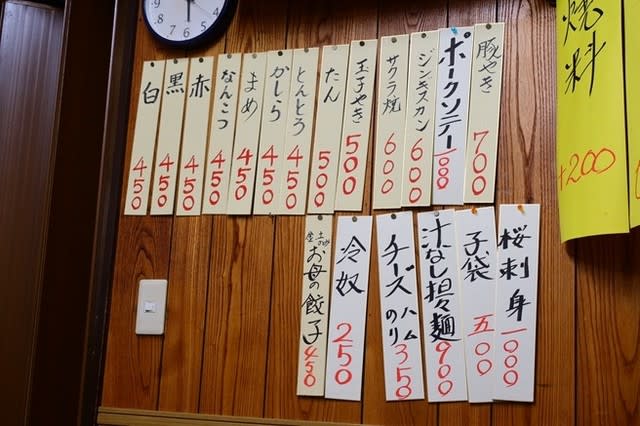 豚やき 700
ポークソテー 1000
ジンギスカン 600
サクラ焼 600
玉子やき 500
たん 500
とんとろ 450
かしら 450
まめ 450
なんこつ 450
赤 450
黒 450
白 450
桜刺身 1000
子袋 五00
汁なし担々麺 900
チーズ ハム のり 350
冷奴 250
お母の餃子 450
焼料
+200